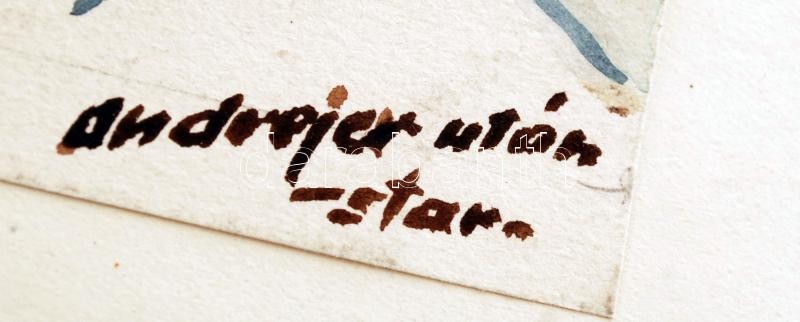 andrejer után
-star.
darabanth